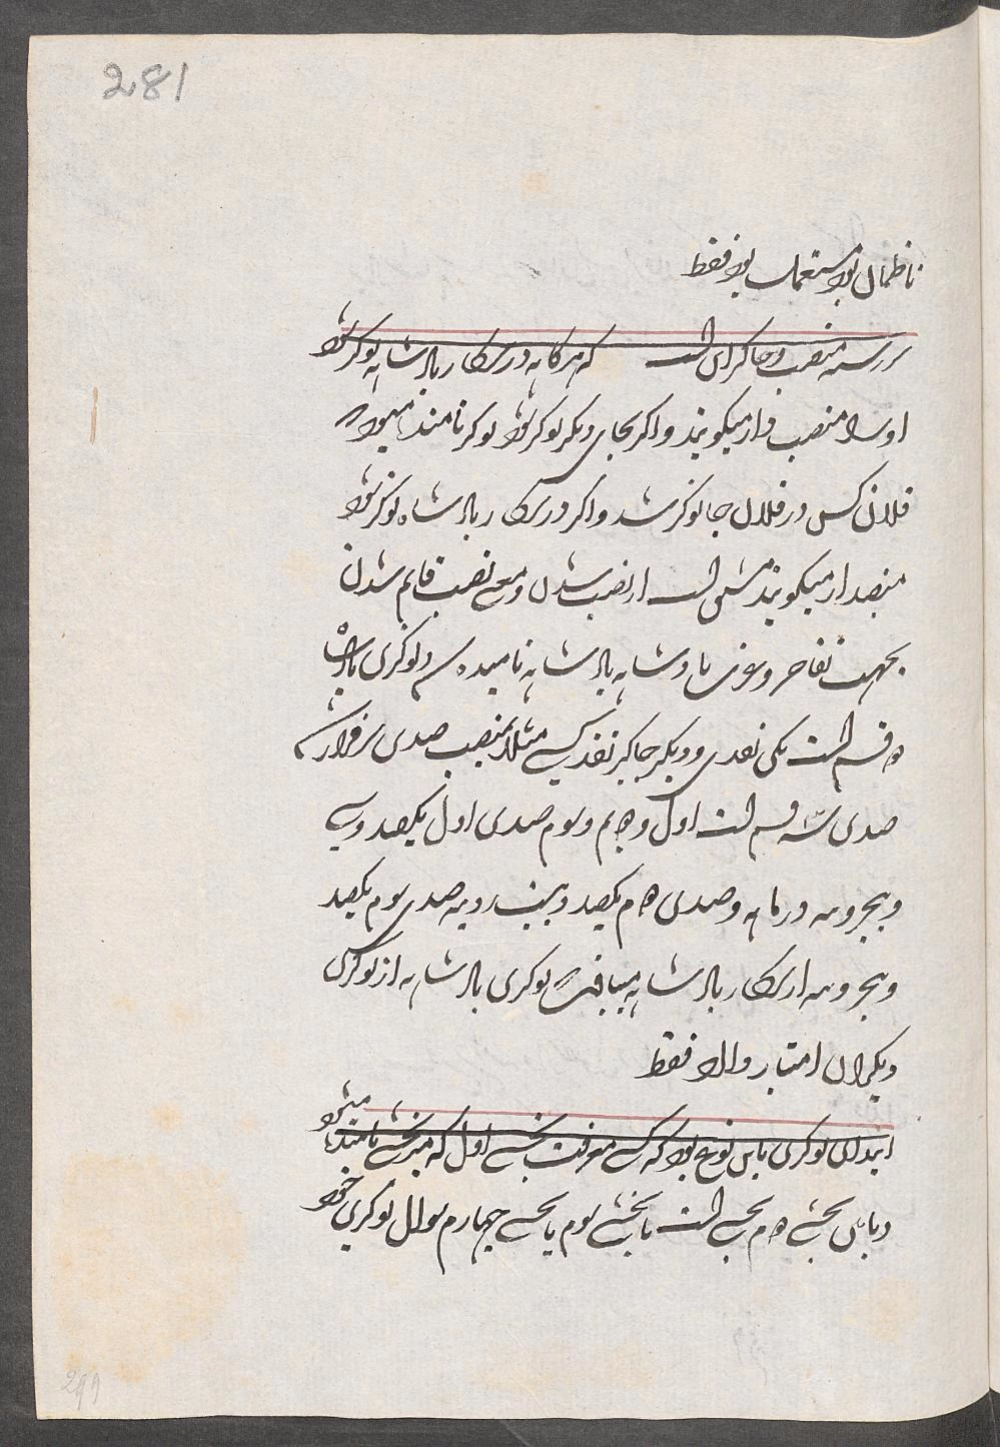 281
ناظمان بود مستعمل بود فقط
سررشته منصب و جاکیر این است که هر کاه در سرکار بادشاهی نوکر شود
او را منصب دار میکویند و اکر بجای دیکر نوکر شود نوکر نامند میکویند
فلان کس در فلان جا نوکر شد و اکر در سرکار بادشاه نوکر شود
منصبدار میکویند مشتق است از نصب شدن و معنی نصب قایم شدن
بجهت تفاخر و عزت بادشاهی نامیده و نوکری بادشاه
دو قسم است یکی نقدی و دیکر جاکیر نقد کسی مثلا بمنصب صدی سرفراز شد
صدی سه قسم است اول و دویم و سوم صدی اول یکصد و سی
و پنجروپیه درماهه و صدی دوم یکصد و بیست روپیه صدی سوم یکصد
و پنجروپیه از سرکار بادشاهی مییافت نوکری بادشاهی از نوکری
دیکران امتیاز دارد فقط
ابتدای نوکری باین نوع بود که کسی معرفت بخشی اول که میر بخشی نامند میشود
و یا بخشی دوم یا بخشی سوم یا بخشی چهارم سوال نوکری خود
299